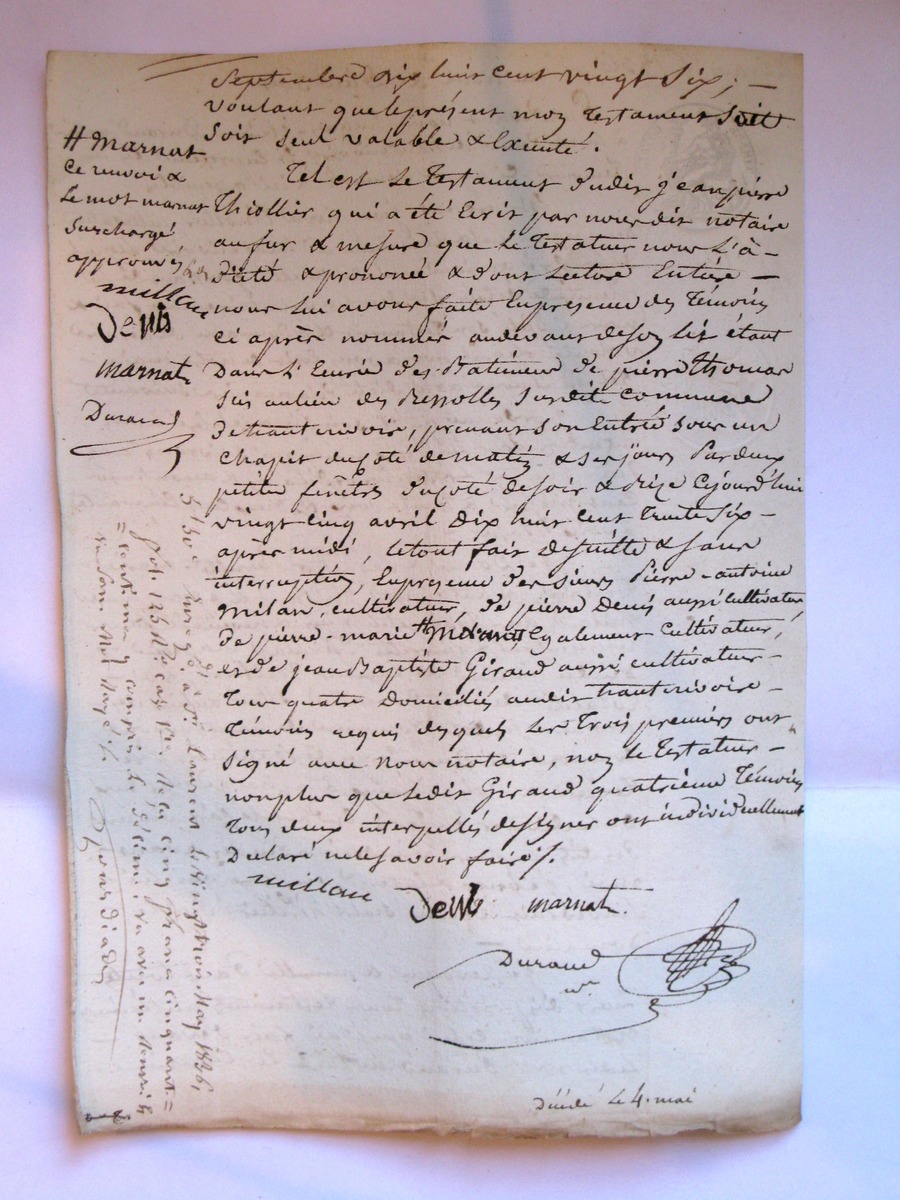 Septembre dix huit cent vingt six; –
voulant que le présent moy Testament soit
soit seul valable & Exécuté.
Tel est le Testament dudit jean pierre
Thiollier qui a été Ecrit par nous dit notaire
au fur & mesure que le Testateur nous l'à –
dicté & prononcé & dont lecture Entière –
nous lui avons faite En presence des Témoins
ci après nommés au devant de son lit étant
Dans l'Ecurie des Batiments de pierre thomas
sis au lieu des Ressolles susdite commune
de hauterivoire, prenant son Entrée sous un
chapit du Coté de matin & ses jours Par deux
petites fenêtres du coté de soir & Bize Cejourd'hui
vingt cinq avril Dix huit cent Trente Six –
après midi, le tout fait de suitte & sans
interruption, En presence des sieurs Pierre-antoine
Milan, cultivateur, de pierre Denis aussi cultivateur
de pierre-marie # Egalement cultivateur,
et de jean Baptiste Giraud aussi cultivateur –
Tous quatre Domiciliés audit hauterivoire –
Témoins requis desquels les Trois premiers ont
signé avec nous notaire, noy le Testateur –
non plus que ledit Giraud quatrième Témoin
Tous deux interpellés de signer ont individuellement
Declaré ne le savoir faire /.
millan Denis marnat.
Durand
nre
Décédé le 4. mai
# marnat
Ce renvoi &
Le mot marnat
Surchargé
approuvés
millan
Denis
marnat
Durand
St Laurent le vingt trois May 1836,
fol. 126 Ro Cas de la cinq francs cinquante =
= cent mes compris le décime